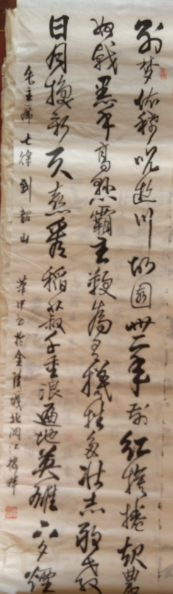 别梦依稀咒逝川故園卅二年前红旗捲起農
奴戟黑手高悬霸主鞭為有犧牲多壮志敢教
日月换新天喜看稻菽千重浪遍地英雄下夕煙
毛主席七律到韶山
於金陵城北